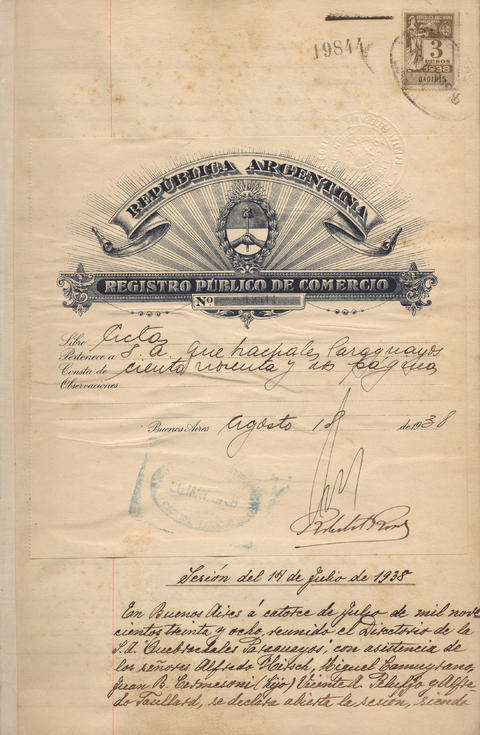 19844
REPUBLICA ARGENTINA
3
PESOS
1938
REPÚBLICA ARGENTINA
REGISTRO PÚBLICO DE COMERCIO
Nº
Libro Actas
Pertenece a S.A. Quebrachales Paraguayos
Consta de ciento noventa y páginas
Observaciones
Buenos Aires agosto 18 de 1938
Sesión del 14 de Julio de 1938
En Buenos Aires á catorce de Julio de mil nove
cientos treinta y ocho, reunido el Directorio de la
S.A. Quebrachales Paraguayos, con asistencia
de los señores Alfredo Miguel
Juan B. (hijo) Vicente A. y Alfre-
do Taullard, se declara abierta la sesión, siendo